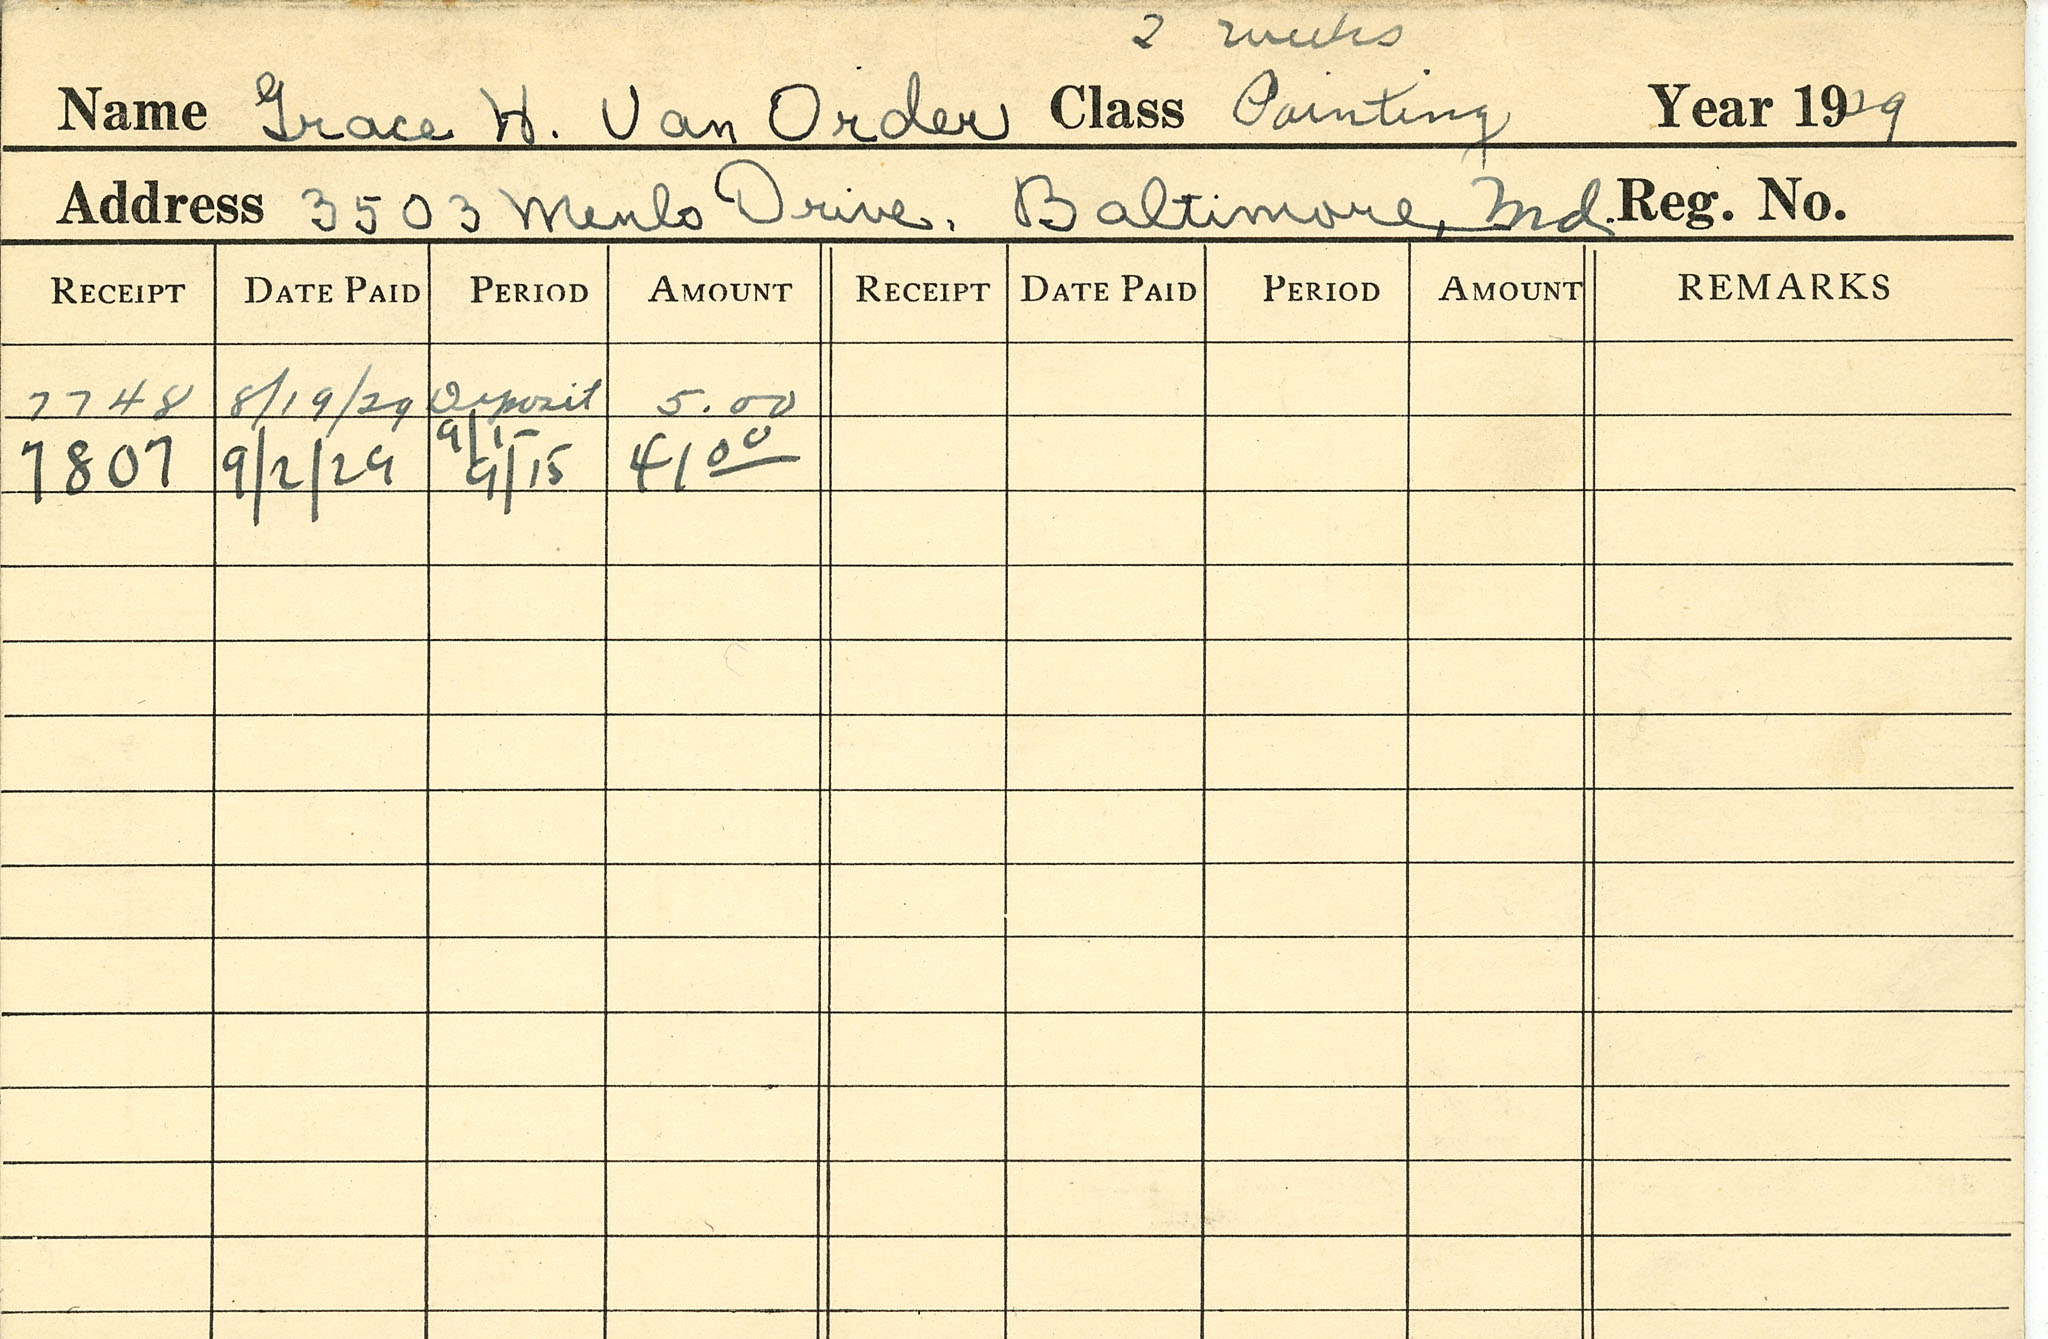 2 weeks
Name Grace H. Van Order Class Painting Year 1929
Address 3503 Menlo Drive. Baltimore, Md. Reg. No.
RECEIPT DATE PAID PERIOD AMOUNT RECEIPT DATE PAID PERIOD AMOUNT REMARKS
7748 8/19/29 Deposit 5.00
9/1-
7807 9/2/29 9/15 41 00